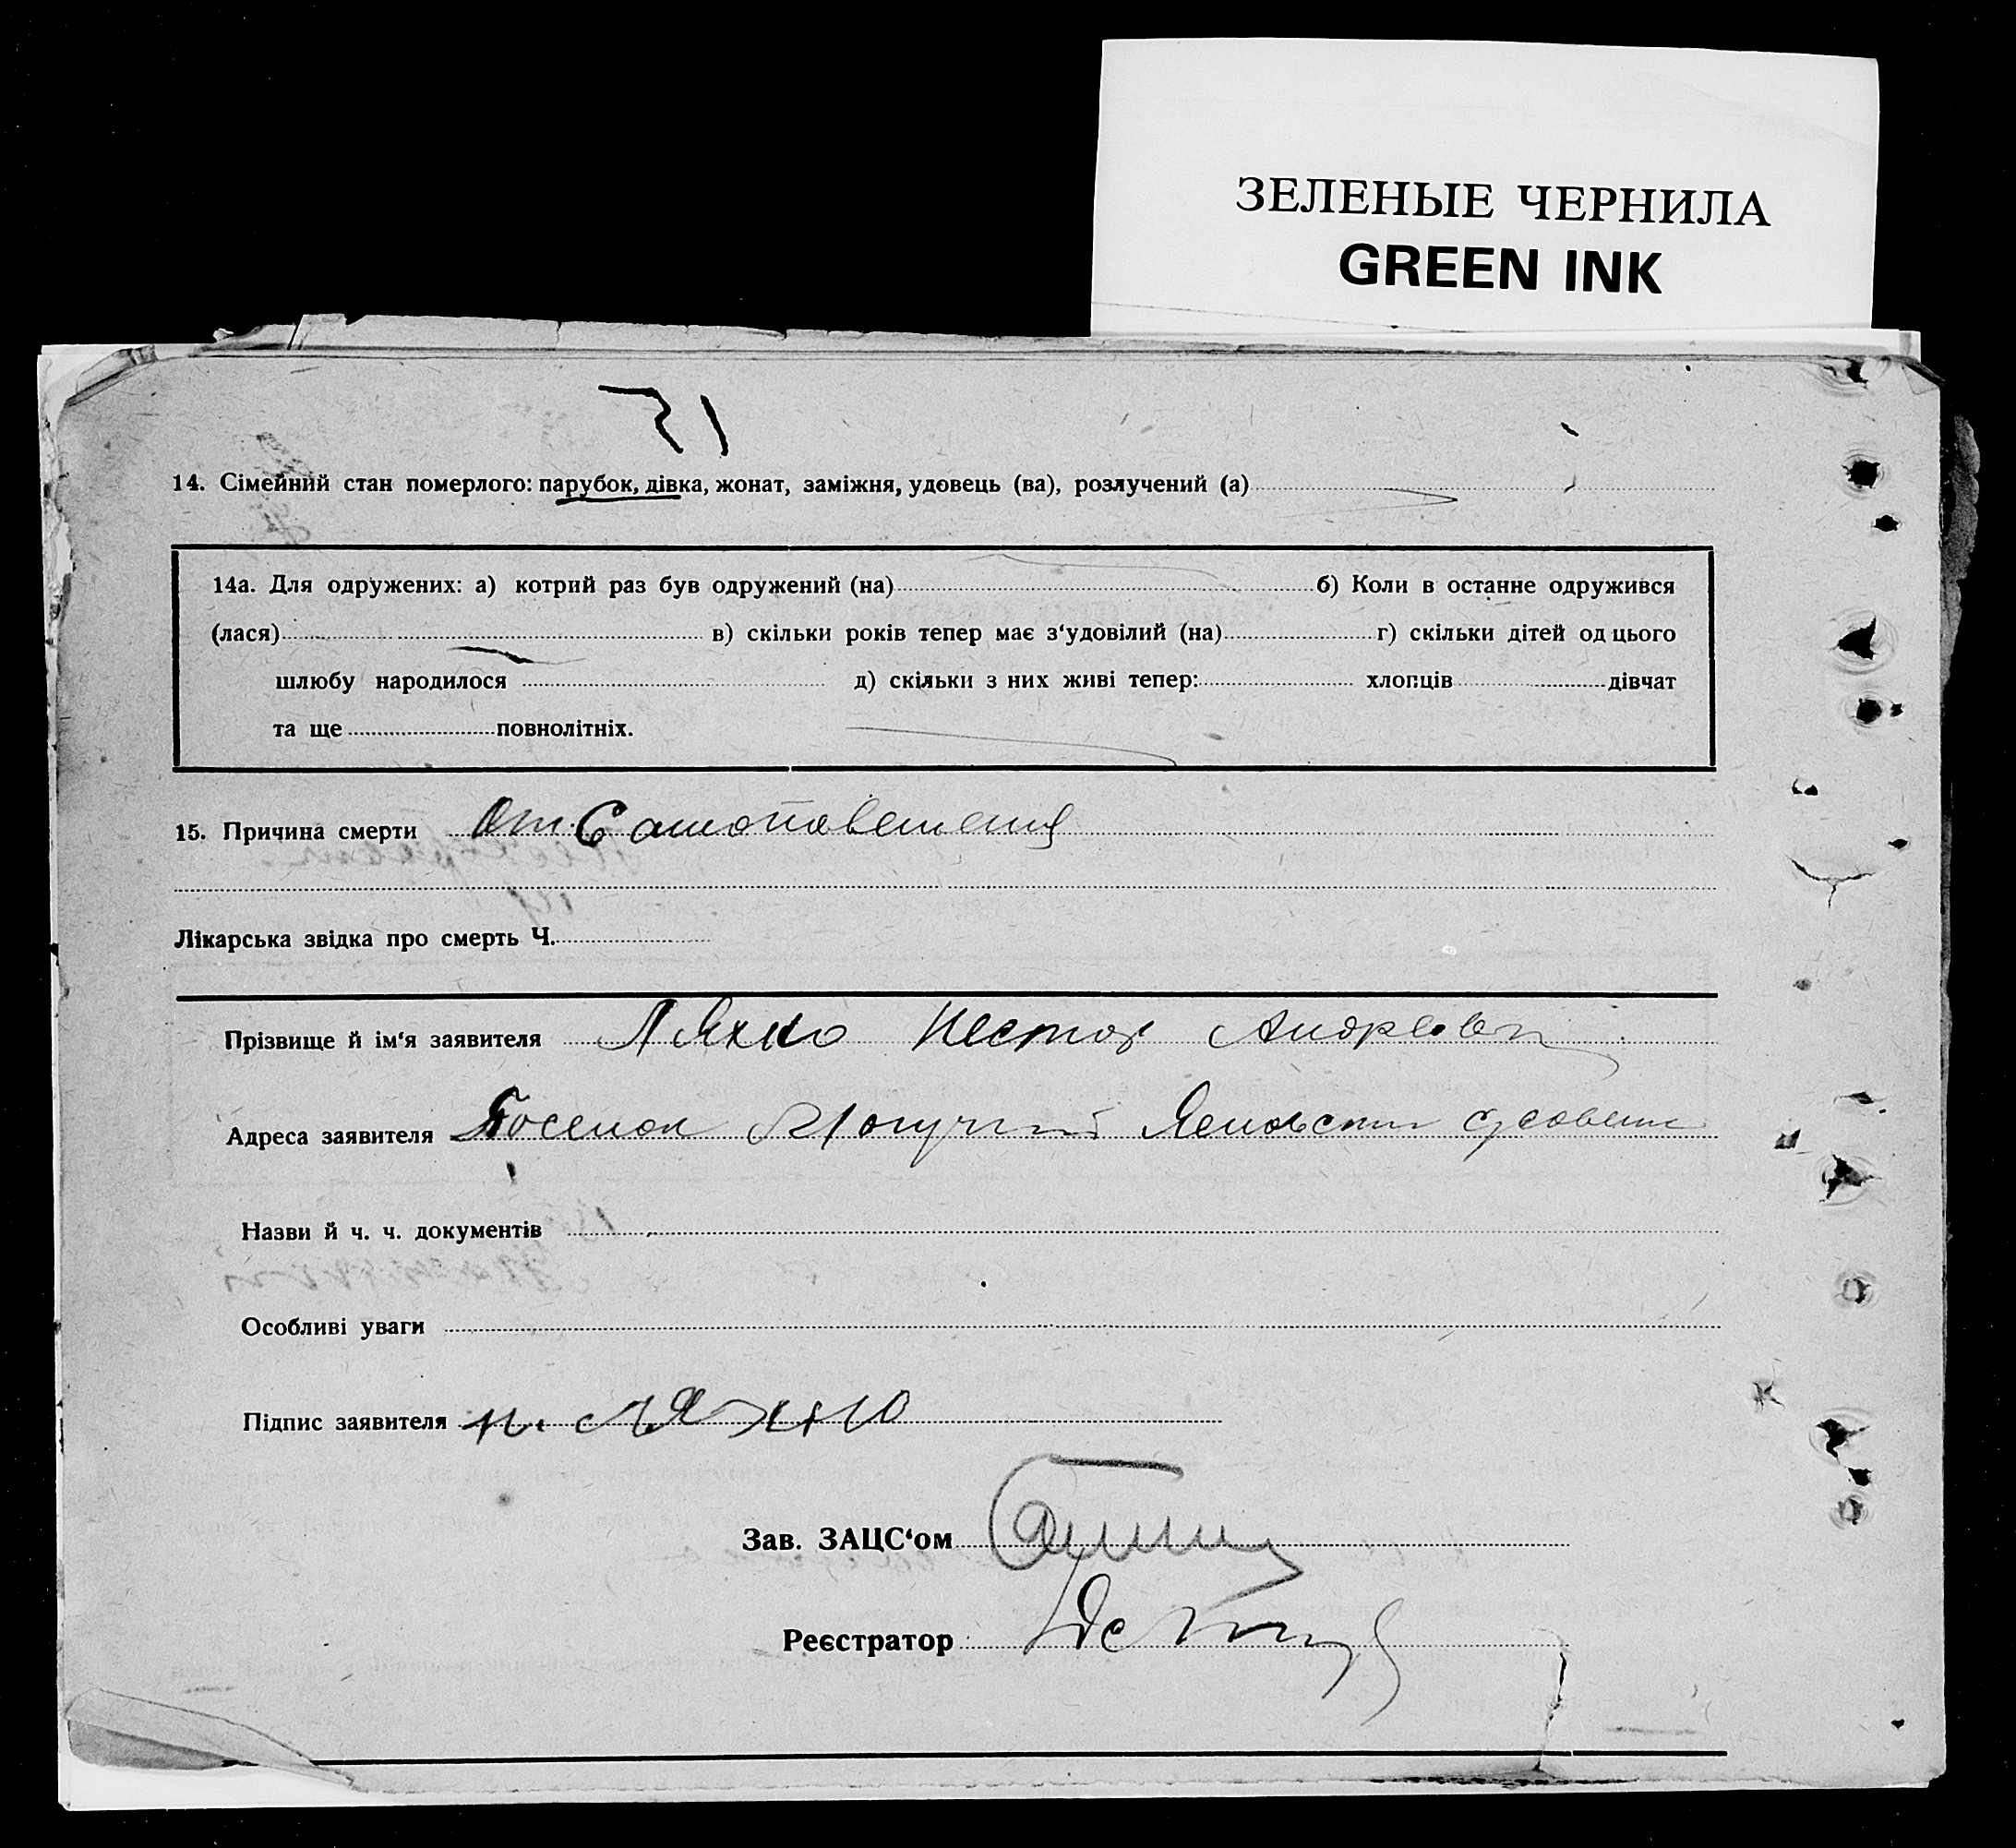 ЗЕЛЕНЫЕ ЧЕРНИЛА
GREEN INK
71
14. Сімейний стан померлого: парубок, дівка, жонат, заміжня, удовець (ва), розлучений (а)
14а. Для одружених: а) котрий раз був одружений (на) б) Коли в останнє одружився
(лася) в) скільки років тепер має з‘удовілий (на) г) скільки дітей од цього
шлюбу народилося д) скільки з них живі тепер: хлопців дівчат
та ще повнолітніх.
15. Причина смерти От Самоповешения
Лікарська звідка про смерть Ч.
Прізвище й ім‘я заявителя Ляхно Нестор Андреевич
Адреса заявителя Поселок Могучий
Назви й ч. ч. документів
Особливі уваги
Підпис заявителя Н. Ляхно
Зав. ЗАЦС‘ом
Реєстратор